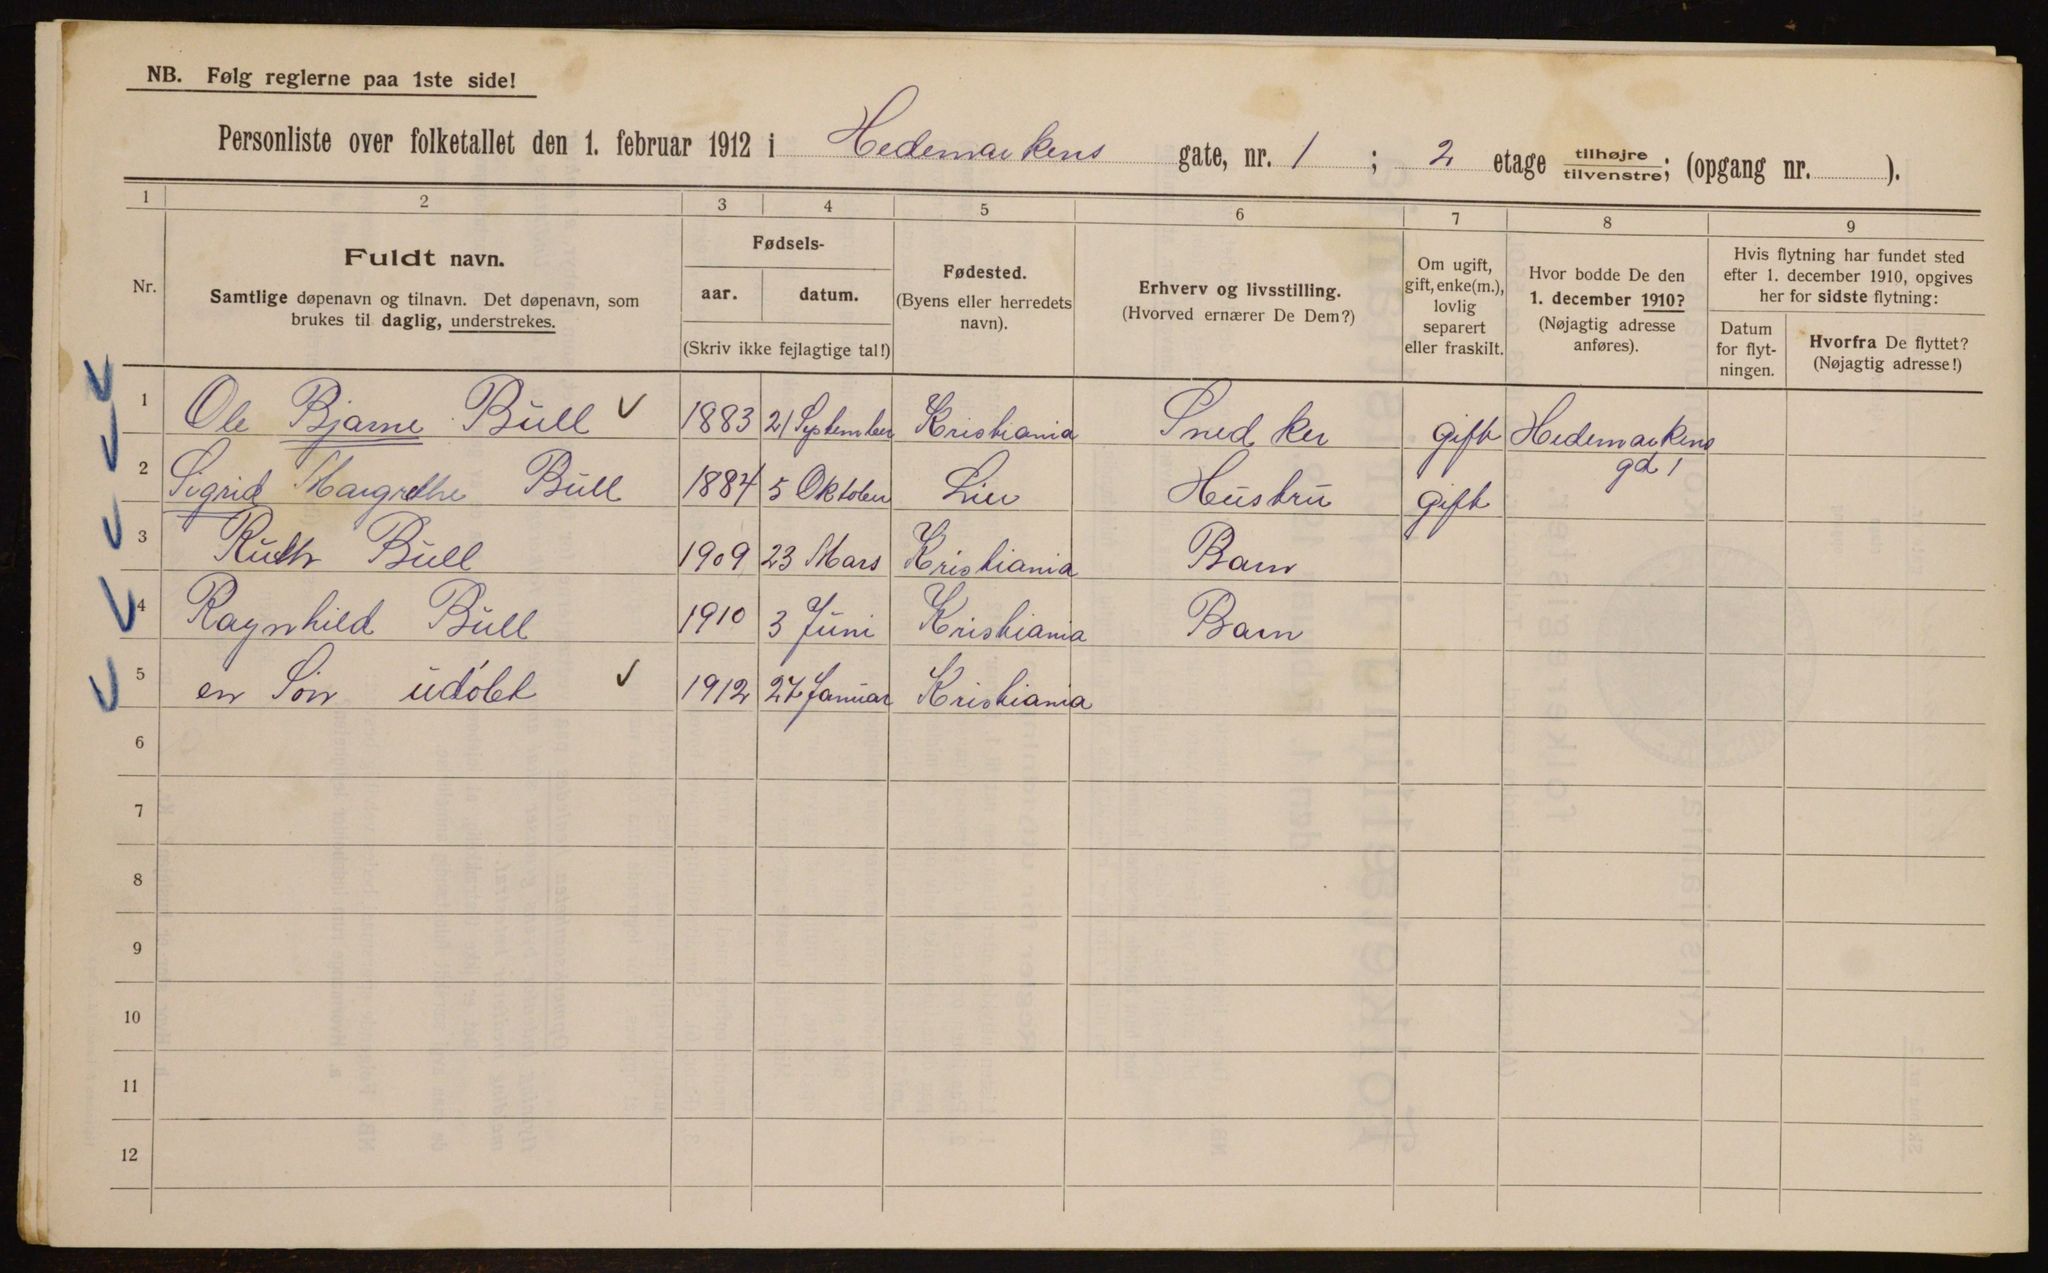 NB. Følg reglerne paa 1ste side!
Personliste over folketallet den 1. februar 1912 i Hedemarkens gate, nr. 1 ; 2 etage tilhøjre/tilvenstre; (opgang nr. ).
1 2 3 4 5 6 7 8 9
Nr.
Fuldt navn.
Samtlige døpenavn og tilnavn. Det døpenavn, som
brukes til daglig, understrekes.
Fødsels-
aar. datum.
(Skriv ikke fejlagtige tal!)
Fødested.
(Byens eller herredets
navn).
Erhverv og livsstilling.
(Hvorved ernærer De Dem?)
Om ugift,
gift, enke(m.),
lovlig
separert
eller fraskilt.
Hvor bodde De den
1. december 1910?
(Nøjagtig adresse
anføres).
Hvis flytning har fundet sted
efter 1. december 1910, opgives
her for sidste flytning:
Datum
for flyt-
ningen.
Hvorfra De flyttet?
(Nøjagtig adresse!)
1 Ole Bjarne Bull 1883 21 September Kristiania Snedker gift Hedemarkens
gd 1
2 Sigrid Margrethe Bull 1884 5 Oktober Lier Hustru gift
3 Ruth Bull 1909 23 Mars Kristiania Barn
4 Ragnhild Bull 1910 3 Juni Kristiania Barn
5 en Søn udøbt 1912 27 Januar Kristiania
6
7
8
9
10
11
12